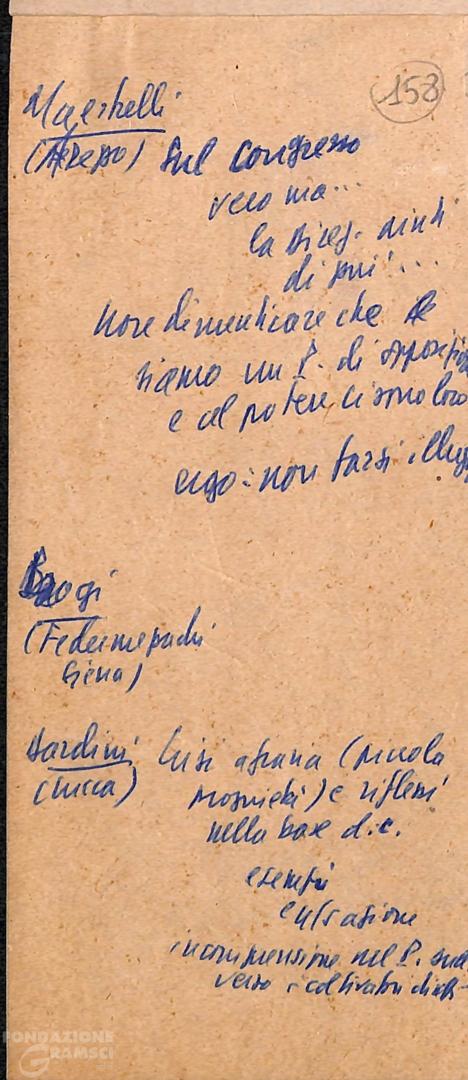 158
Maestrelli
(Arezzo) Sul congresso
vero ma...
la direz. aiuti
di più...
Non dimenticare che
siamo un P. di opposizi
e al potere ci sono loro
ergo: non farsi illus
Brogi
(Federmezzadri
Siena)
Dardini Crisi agraria (piccola
(Lucca) proprietà) e riflessi
nella base d.c.
esempi
evasione
incomprensione nel P.
verso i coltivatori dirett
FONDAZIONE
GRAMSCI